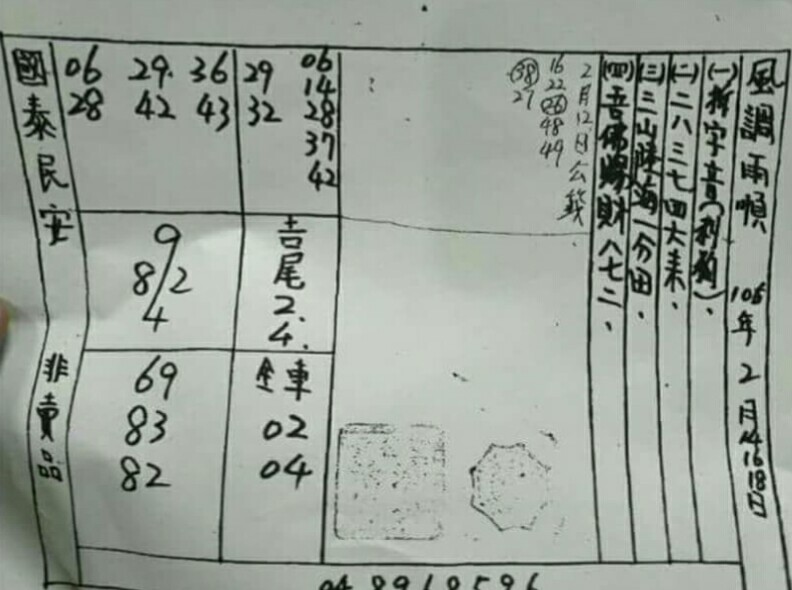 風調雨順 106年2月14 16 18日
(一)拆字音(利韵)、
(二)二八三七四大来、
(三)三山陸海一分田、
(四)吾佛賜財八七二、
2月12日公籤
16 22 26 48 49
38 27
06 14 28 37 42
29 32
36 43
29 42
06 28
吉尾 2. 4.
9
8/2
4
全車
02
04
69
83
82
國泰民安 非賣品